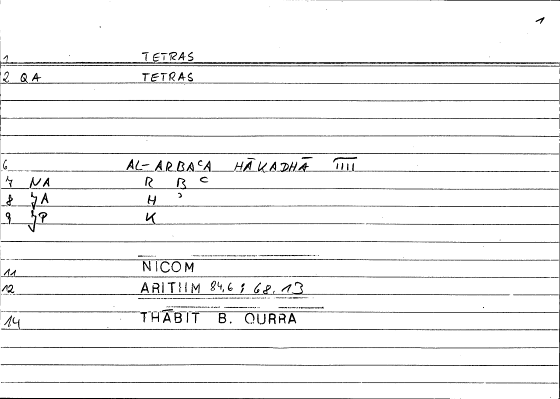 1
1 TETRAS
2 QA TETRAS
6 AL-ARBAᶜA HĀKADHĀ IIII
7 NA R B ᶜ
8 JA H ʾ
9 JP K
11 NICOM
12 ARITIIM 84,6 ; 68.13
14 THĀBIT B. QURRA